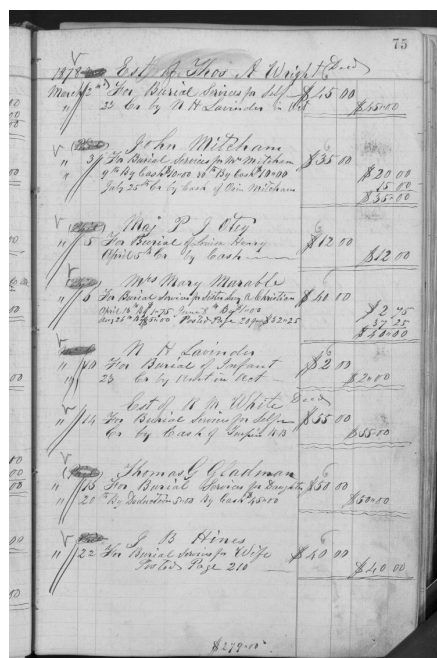 75
1878 Est of Thos A Wright Decd
March 2nd For Burial Services for Self $45 00
" 23 Cr by N H Lavinder in Act $45.00
John Mitcham
" 3 For Burial Services for Mr Mitcham $35 00
9th By Cash 10.00 10th By Cash 10.00 $20 00
July 25th Cr by Cash of Mitcham 15 00
$35.00
Maj P J Otey
" 5 For Burial of Henry $12 00
April 5th Cr by Cash $12 00
Mrs Mary Marable
" 6 For Burial Services for Christian $40 00
April 16th By 1.75 June 8th By 1.00 $2.75
Aug 26th By 5.00 Posted Page 209 $32.25 37.25
$40.00
N H Lavinder
" 10 For Burial of Infant $2 00
" 23 Cr by Amt in Act $2.00
Est of A M White Decd
" 14 For Burial Services for Self $55 00
Cr by Cash of $55.00
Thomas G Gladman
" 15 For Burial Services for Daughter $50 00
" 20th By Deduction 5.00 By Cash 45.00 $50.00
J B Hines
" 22 For Burial Services for Wife $40 00
Posted Page 210 $40 00
$279.00